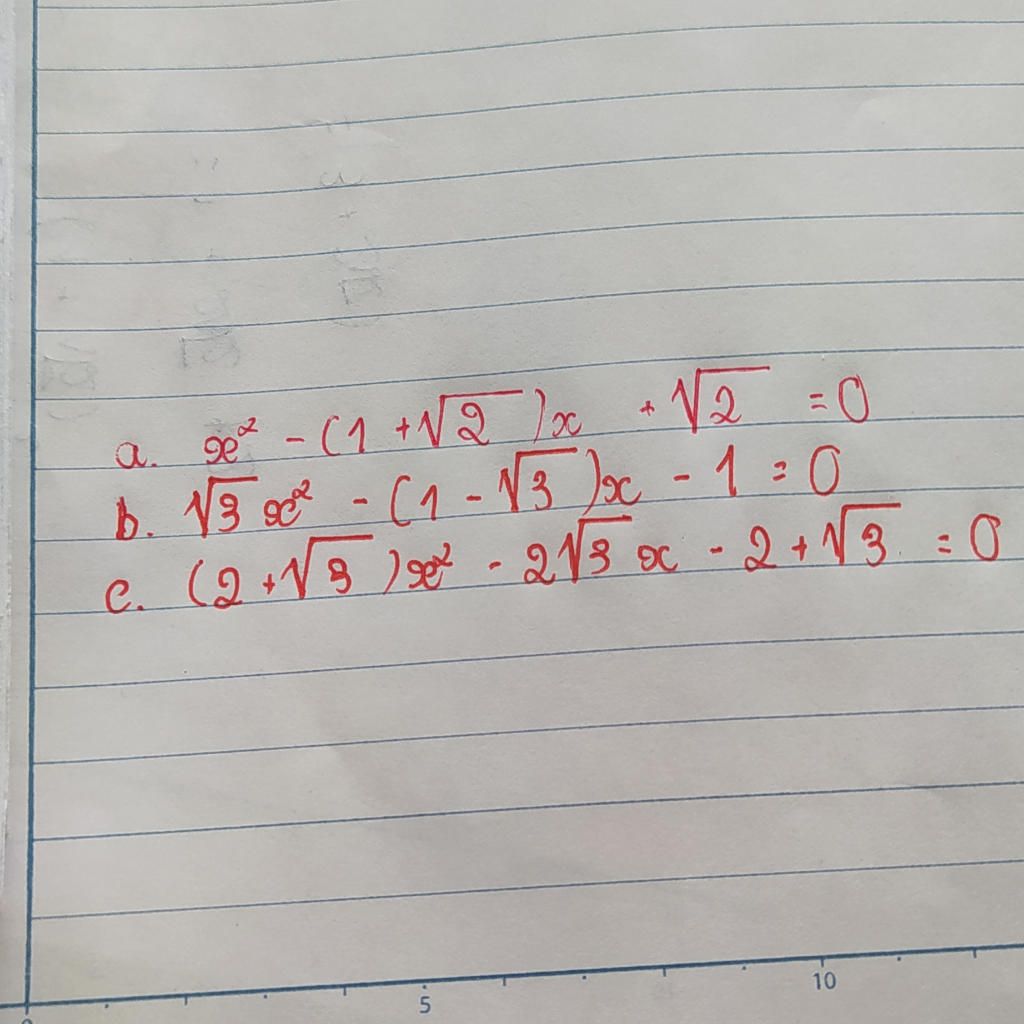 a. x² - (1 + √2)x + √2 = 0
b. √3 x² - (1 - √3)x - 1 = 0
c. (2 + √3)x² - 2√3 x - 2 + √3 = 0
5 10